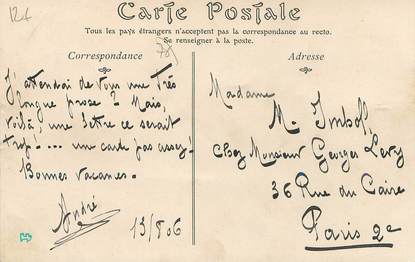 124
78
Carte Postale
Tous les pays étrangers n'acceptent pas la correspondance au recto.
Se renseigner à la poste.
Correspondance
J'attendai de vous une très
longue prose - Mais,
voilà, une lettre ce serait
trop. .... une carte pas assez!
Bonnes vacances.
André
13/8 06
Adresse
Madame
M. Imhoff,
Chez Monsieur Georges Levy
36 Rue du Caire
Paris 2e